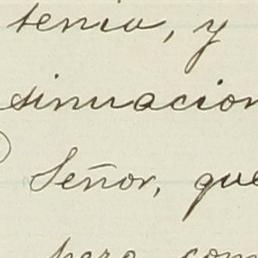 tenia, y
sinuacion
Señor, que
pero com